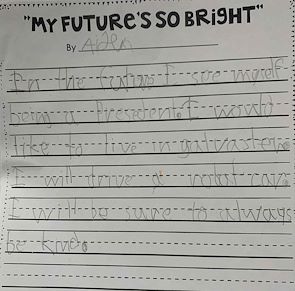 "MY FUTURE'S SO BRIGHT"
By Aiden
In the future I see myself
being a President. I would
like to live in
I will drive a robot car.
I will be sure to always
be kind.